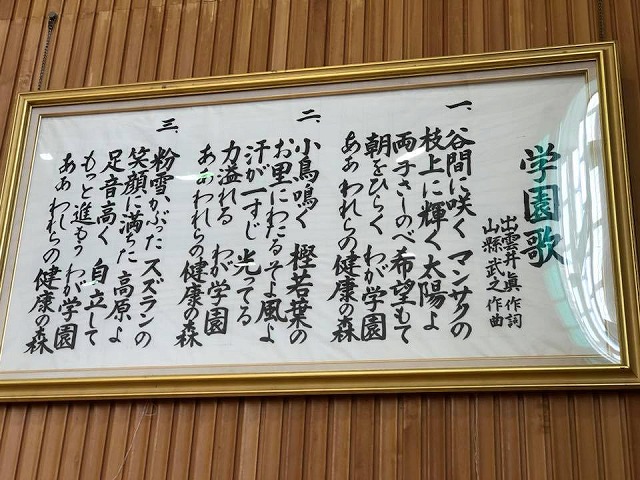 学園歌
出雲井 眞 作詞
山縣 武之 作曲
一、谷間に咲く マンサクの
枝上に輝く 太陽よ
両手さしのべ 希望もて
朝をひらく わが学園
あぁ われらの健康の森
二、小鳥鳴く 樫若葉の
お里にわたる そよ風よ
汗が一すじ 光ってる
力溢れる わが学園
あぁ われらの健康の森
三、粉雪かぶった スズランの
笑顔に満ちた 高原よ
足音高く 自立して
もっと進もう わが学園
あぁ われらの健康の森